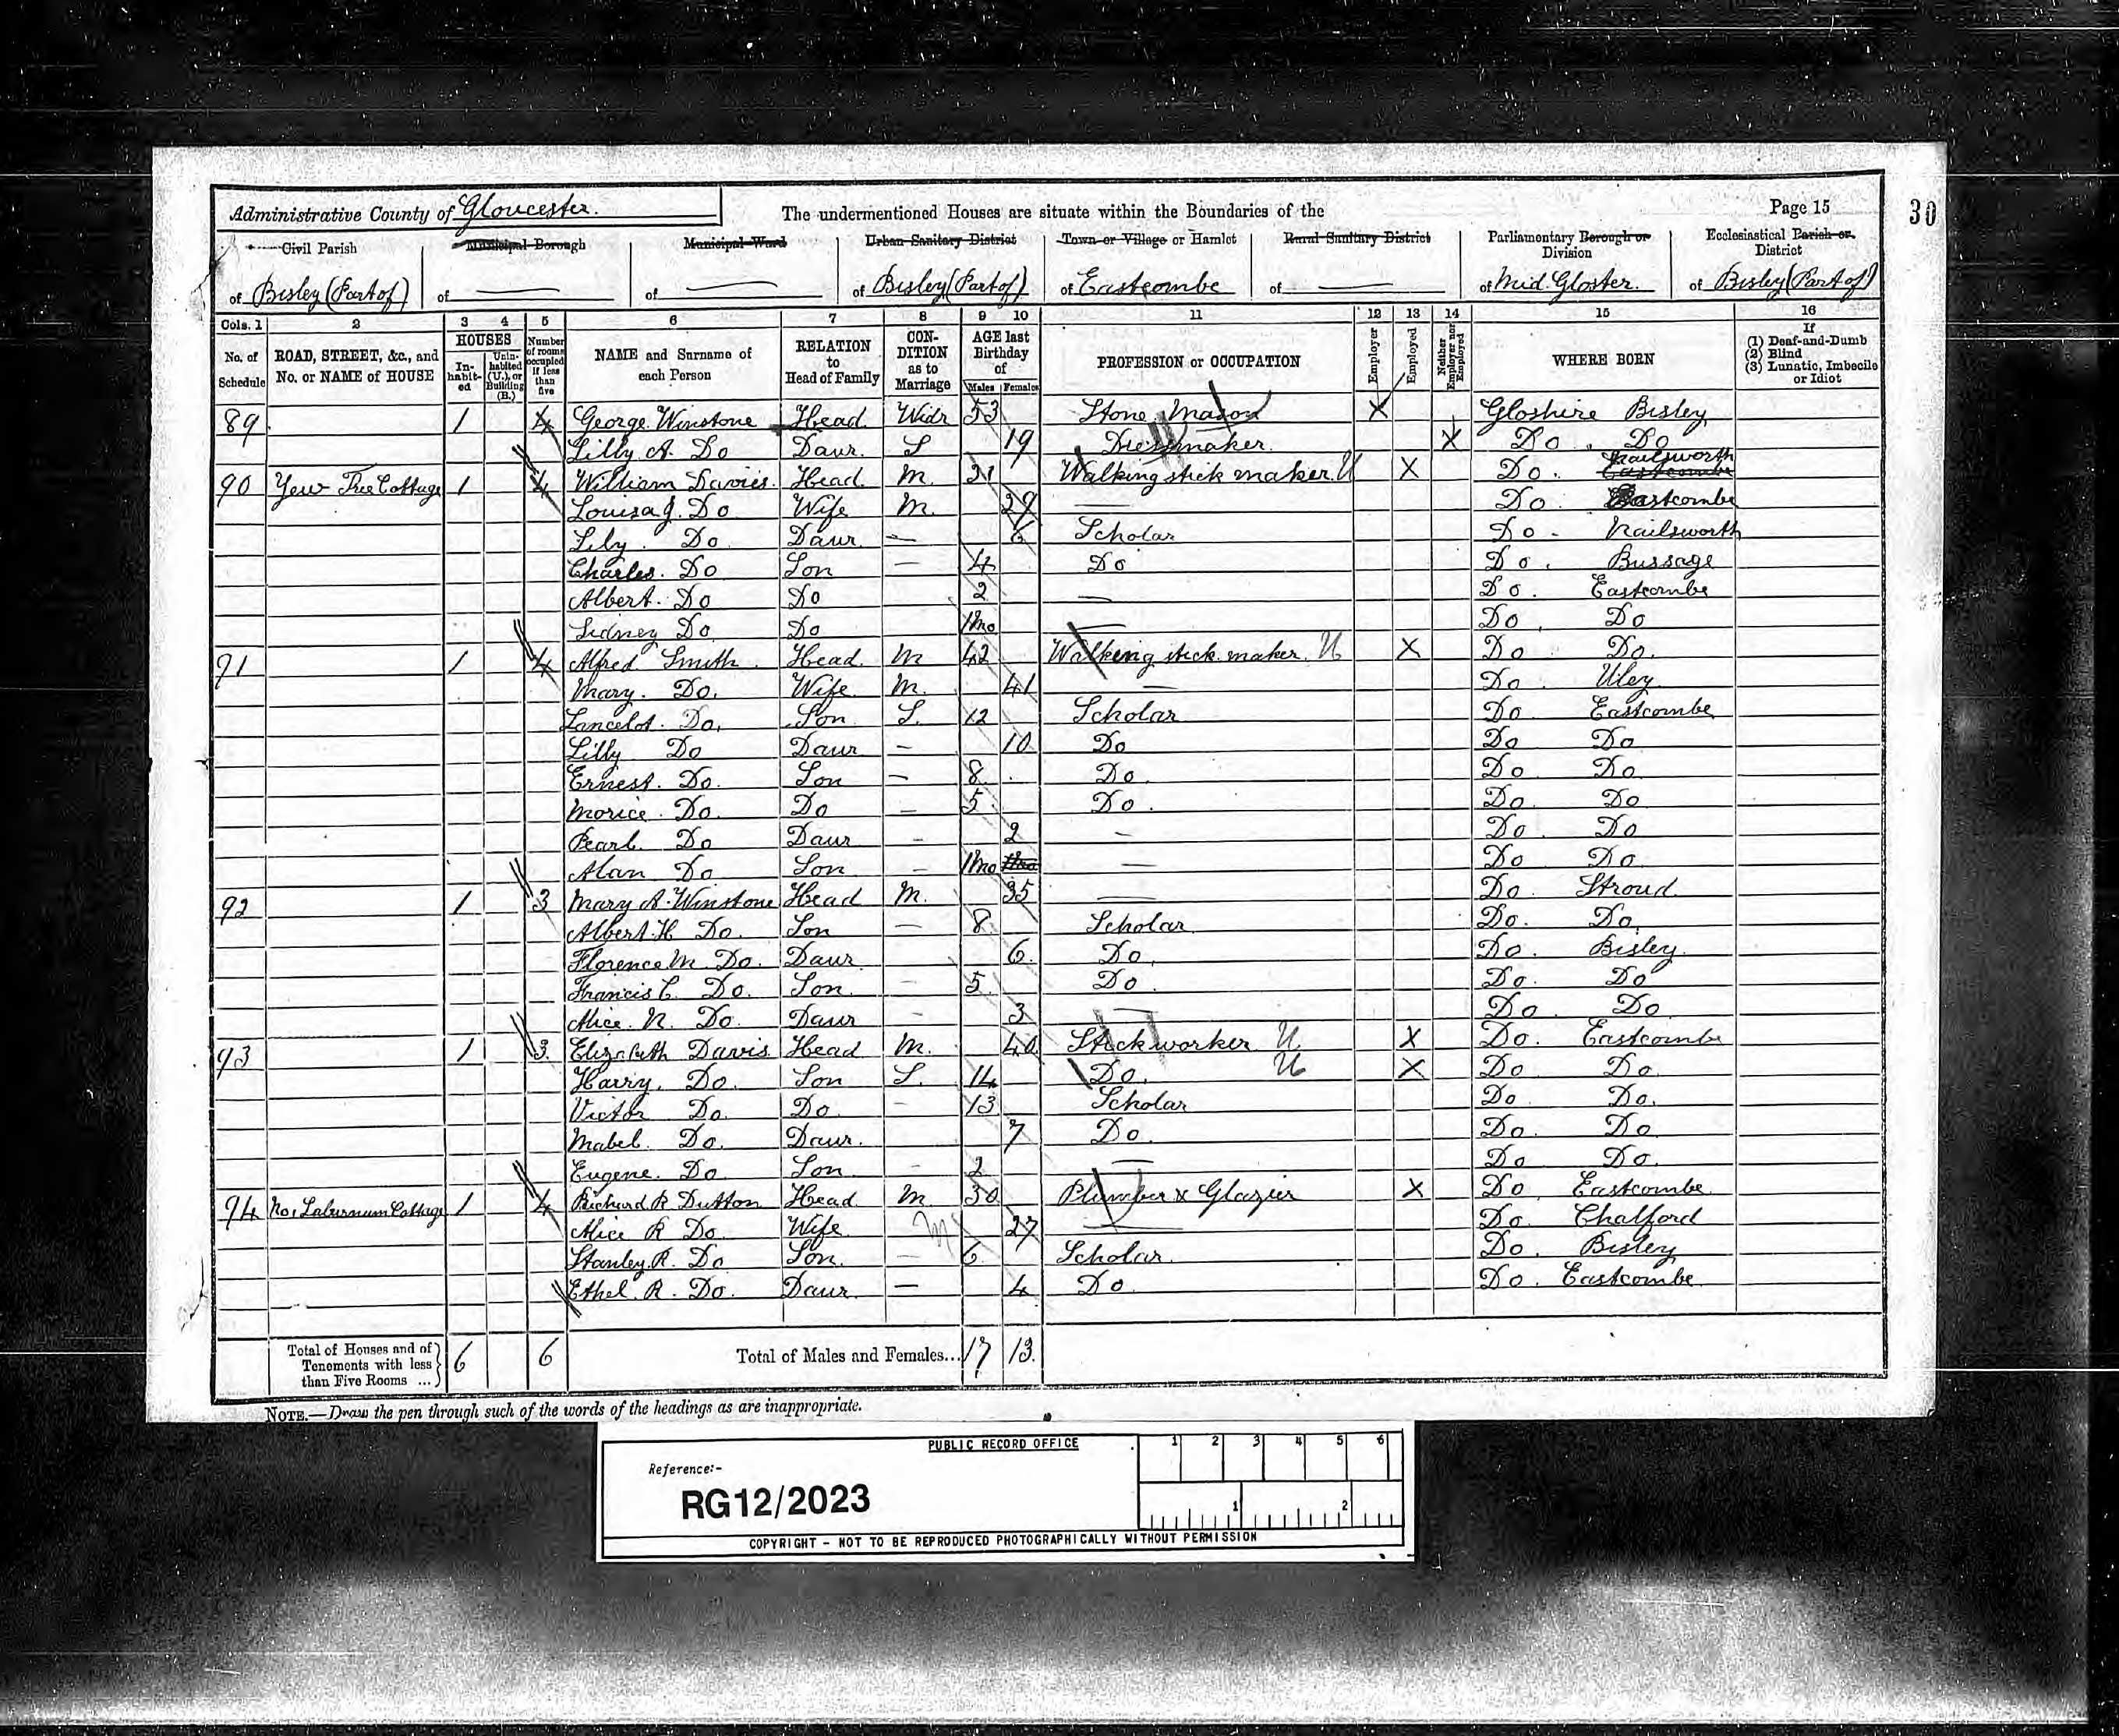 Administrative County of Gloucester. The undermentioned Houses are situate within the Boundaries of the Page 15 30
Civil Parish Municipal Borough Municipal Ward Urban Sanitary District Town or Village or Hamlet Rural Sanitary District Parliamentary Borough or Division Ecclesiastical Parish or District
of Bisley (Part of) of — of — of Bisley (Part of) of Eastcombe of — of Mid. Gloster of Bisley (Part of)
Cols. 1 2 3 4 5 6 7 8 9 10 11 12 13 14 15 16
No. of Schedule ROAD, STREET, &c., and No. or NAME of HOUSE HOUSES Inhabited Uninhabited (U.), or Building (B.) Number of rooms occupied if less than five NAME and Surname of each Person RELATION to Head of Family CONDITION as to Marriage AGE last Birthday of Males Females PROFESSION or OCCUPATION Employer Employed Neither Employer nor Employed WHERE BORN If (1) Deaf-and-Dumb (2) Blind (3) Lunatic, Imbecile or Idiot
89 1 4 George Winstone Head Widr 53 Stone Mason X Gloshire Bisley
Lilly A. Do Daur. S 19 Dressmaker X Do. Do
90 Yew Tree Cottage 1 4 William Davies. Head M. 31 Walking stick maker U X Do. Nailsworth Eastcombe
Louisa J. Do Wife M. 29 — Do Eastcombe
Lily. Do Daur. — 6 Scholar Do. Nailsworth
Charles. Do Son — 4 Do Do. Bussage
Albert. Do Do 2 — Do. Eastcombe
Sidney Do Do 1mo — Do. Do
91 1 4 Alfred Smith. Head. M 42 Walking stick maker. U X Do Do.
Mary. Do. Wife. M. 41 — Do. Uley
Lancelot. Do. Son S. 12 Scholar Do Eastcombe
Lilly Do Daur — 10 Do Do Do
Ernest. Do. Son — 8 Do. Do Do
Morice. Do. Do — 5 Do. Do Do
Pearl. Do Daur — 2 — Do. Do
Alan Do Son — 1mo 1mo — Do Do
92 1 3 Mary A. Winstone Head M. 35 — Do. Stroud
Albert H Do. Son — 8 Scholar Do. Do.
Florence M. Do. Daur 6 Do. Do. Bisley
Francis C. Do. Son — 5 Do. Do. Do
Alice. N. Do. Daur — 3 — Do Do
93 1 3 Elizabeth Davis. Head M. 40 Stick worker U X Do. Eastcombe
Harry. Do. Son S. 14 Do. U X Do Do
Victor Do. Do — 13 Scholar Do Do.
Mabel. Do. Daur. 7 Do. Do. Do
Eugene. Do Son — 2 — Do Do.
94 No 1 Laburnum Cottage 1 4 Richard R Dutton Head. M 30 Plumber & Glazier X Do Eastcombe
Alice R Do. Wife M 27 — Do. Chalford
Stanley. R. Do Son. — 6 Scholar. Do. Bisley
Ethel. R. Do. Daur. — 4 Do Do. Eastcombe
Total of Houses and of Tenements with less than Five Rooms ... 6 6 Total of Males and Females... 17 13
NOTE.—Draw the pen through such of the words of the headings as are inappropriate.
PUBLIC RECORD OFFICE 1 2 3 4 5 6
Reference:-
RG12/2023 1 2
COPYRIGHT - NOT TO BE REPRODUCED PHOTOGRAPHICALLY WITHOUT PERMISSION